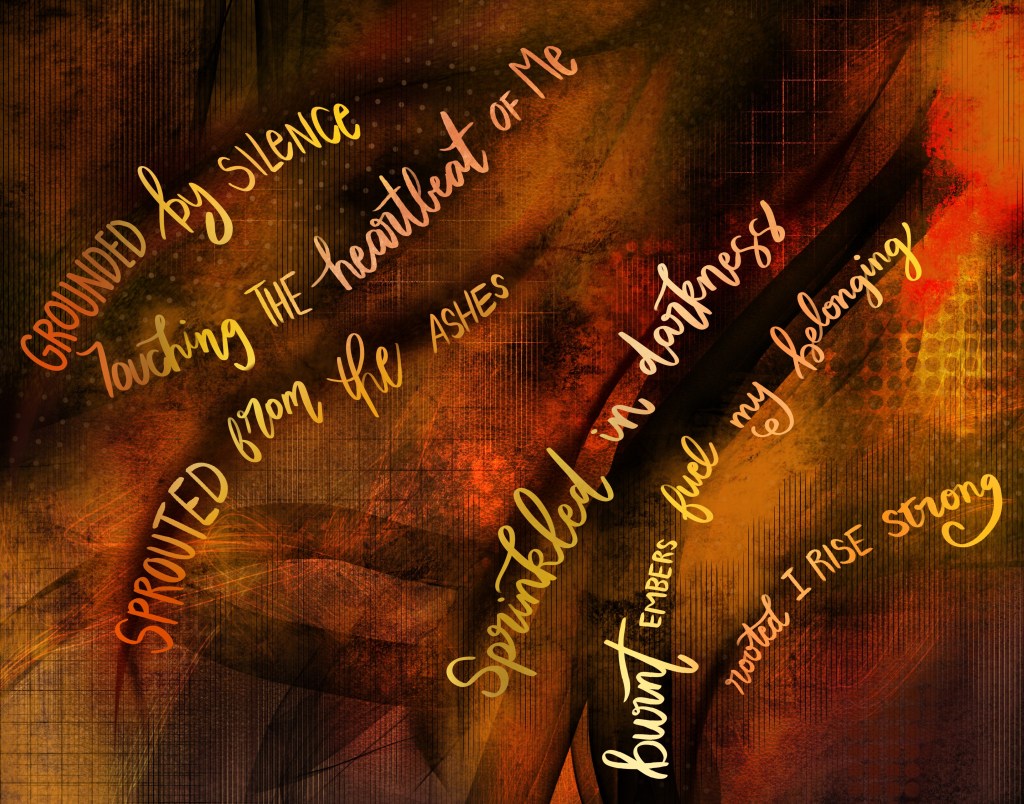 GROUNDED by SILENCE
Touching THE heartbeat OF Me
SPROUTED from the ASHES
Sprinkled in darkness
burnt EMBERS fuel my belonging
rooted I RISE strong